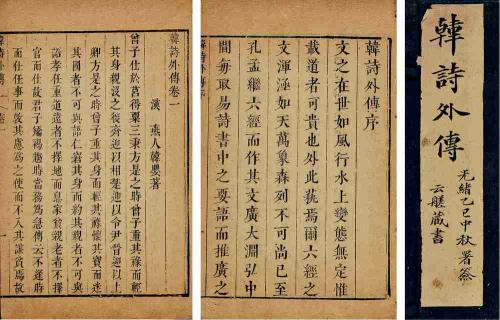 韓詩外傳
光緒乙巳中秋署簽
云艖藏書
韓詩外傳序
文之在世如風行水上變態無定惟
載道者可貴也外此孰焉爾六經之
文渾涵如天萬象森列不可尚已至
孔孟繼六經而作其文廣大淵弘中
間每取易詩書中之要語而推廣之
韓詩外傳卷一
漢 燕人韓嬰著
曾子仕於莒得粟三秉方是之時曾子重其祿而輕
其身親沒之後齊迎以相楚迎以令尹晉迎以上
卿方是之時曾子重其身而輕其祿懷其寶而迷
其國者不可與語仁窘其身而約其親者不可與
語孝任重道遠者不擇地而息家貧親老者不擇
官而仕故君子矯褐趨時當務為急傳云不逢時
而仕任事而敦其慮為之使而不入其謀貧焉故